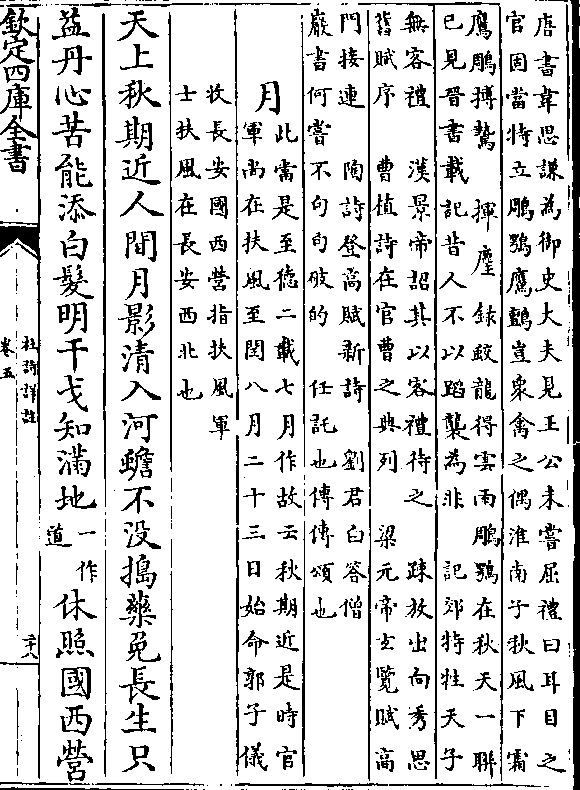 唐書韋思謙為御史大夫見王公未嘗屈禮曰耳目之
官固當特立鵰鶚鷹鸇豈衆禽之偶淮南子秋風下霜
鷹鵰搏鷙　揮麈録鮫龍得雲雨鵰鶚在秋天一聯
已見晉書載記昔人不以蹈襲為非　記郊特牲天子
無客禮　漢景帝詔其以客禮待之　踈放出向秀思
舊賦序　曹植詩在官曹之典列　梁元帝玄覽賦高
門接連　陶詩登高賦新詩　劉君白答僧
巖書何嘗不句句破的　任託也傳傳頌也
月
此當是至德二載七月作故云秋期近是時官
軍尚在扶風至閏八月二十三日始命郭子儀
收長安國西營指扶風軍
士扶風在長安西北也
天上秋期近人間月影清入河蟾不没搗藥兎長生只
益丹心苦能添白髮明干戈知滿地一作道休照國西營
欽定四庫全書
杜詩詳註
卷五
二十八